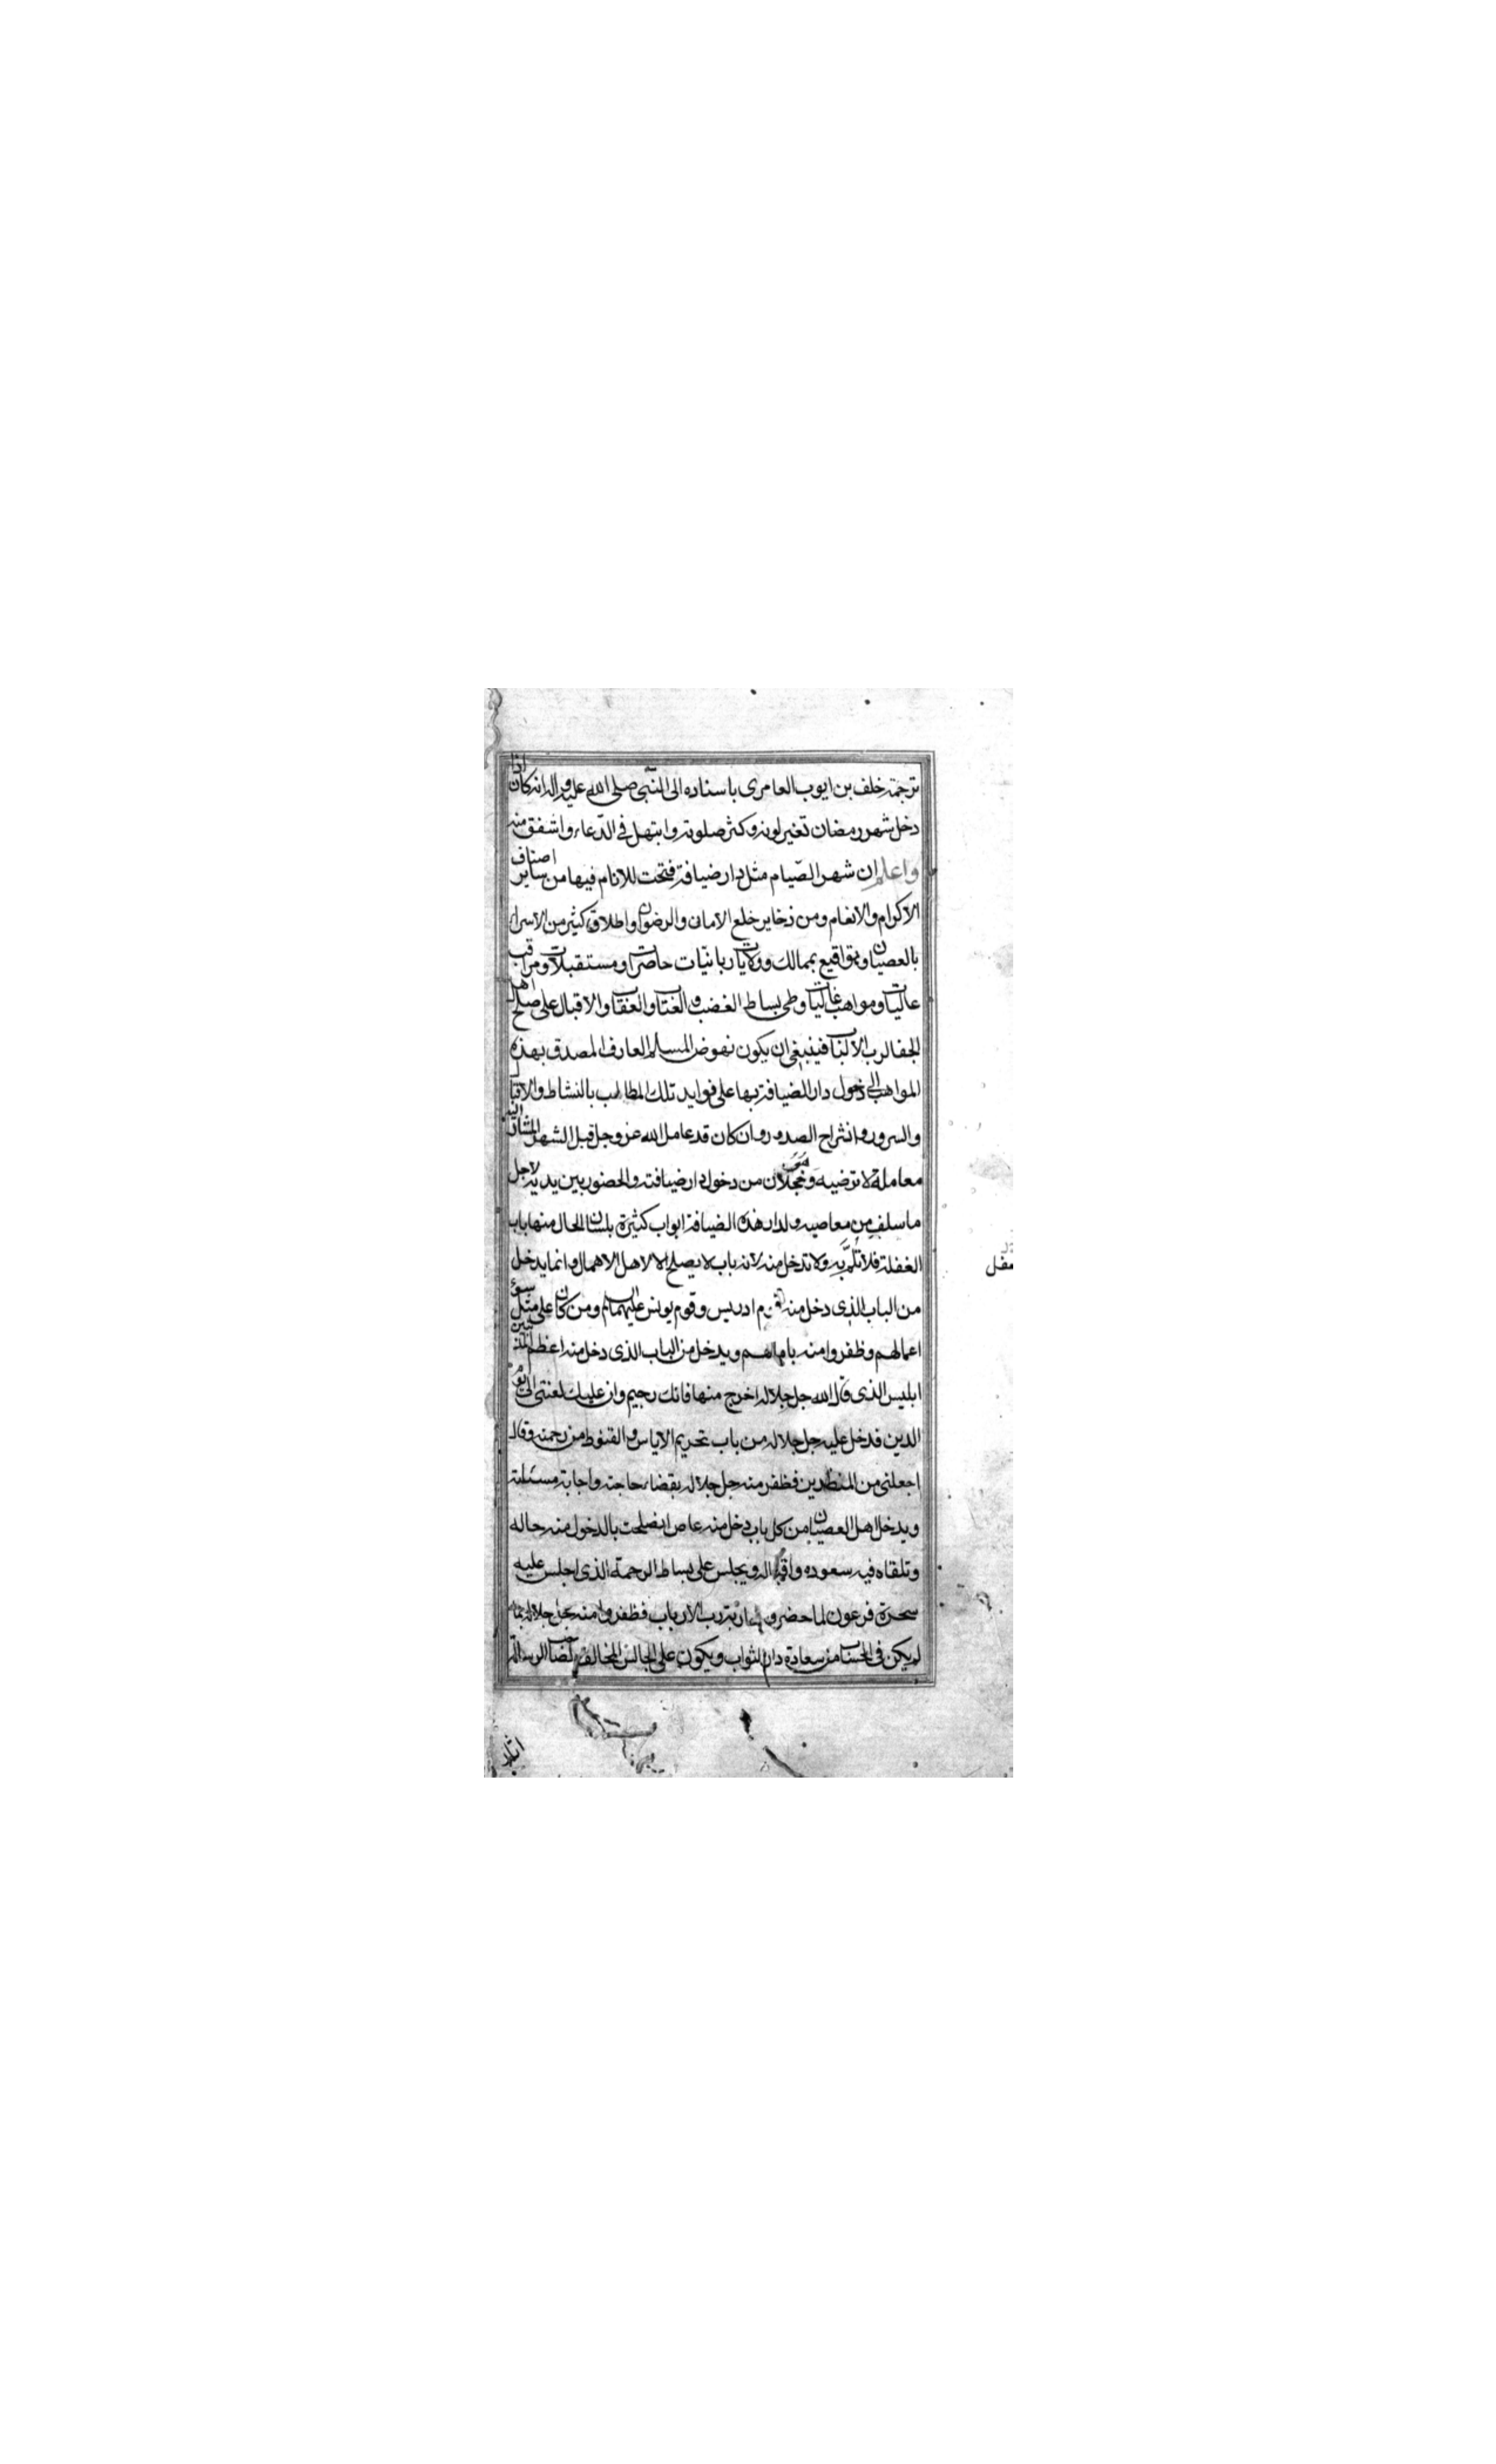 ترجمة خلف بن ايوب العامرى باسناده الى النبى صلى الله عليه واله انه كان اذا
دخل شهر رمضان تغير لونه وكثر صلوته وابتهل فى الدعاء واشفق منه
واعلم ان شهر الصيام مثل دار ضيافة فتحت للانام فيها من ساير اصناف
الاكرام والانعام ومن ذخاير خلع الامان والرضوان واطلاق كثير من الاسراء
بالعصيان وتواقيع بممالك وولايات ربانيات حاضرات ومستقبلات ومراقب
عاليات ومواهب غاليات وطى بساط الغضب والعتاب والعقاب والاقبال على صلح اهل
الجفا لرب الالباب فينبغى ان يكون نهوض المسلم العارف المصدق بهذه
المواهب الى دخول دار الضيافة بها على فوايد تلك المطالب بالنشاط والاقبال
والسرور وانشراح الصدور وان كان قد عامل الله عز وجل قبل الشهر المشار اليه
معاملة لا ترضيه وخجلان من دخول دار ضيافته والحضور بين يديه لاجل
ما سلف من معاصيه ولدار هذه الضيافة ابواب كثيرة بلسان الحال منها باب
الغفلة فلا تلم به ولا تدخل منه لانه باب لا يصلح الا لاهل الاهمال وانما يدخل
من الباب الذى دخل منه قوم ادريس وقوم يونس عليهما السلم ومن كان على مثل سوء
اعمالهم وظفروا منه بامالهم ويدخل من الباب الذى دخل منه اعظم المذنبين
ابليس الذى قال الله جل جلاله اخرج منها فانك رجيم وان عليك لعنتى الى يوم
الدين فدخل عليه جل جلاله من باب تحريم الاياس والقنوط من رحمته وقال
اجعلنى من المنظرين فظفر منه جل جلاله بقضاء حاجته واجابة مسئلته
ويدخل اهل العصيان من كل باب دخل منه عاص انصلحت بالدخول منه حاله
وتلقاه فيه سعوده واقباله ويجلس على بساط الرحمة الذى اجلس عليه
سحرة فرعون لما حضروا لمحاربة رب الارباب فظفروا منه جل جلاله بما
لم يكن فى الحساب من سعادة دار الثواب ويكون على الجالس المخالف لصاحب الرسالة